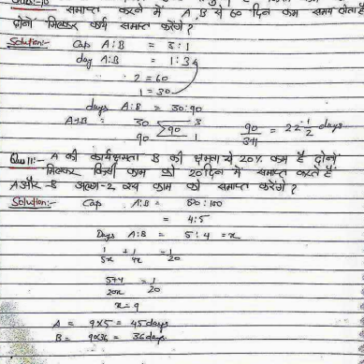 समाप्त करने में A, B से 60 दिन कम समय लेता है
दोनों मिलकर कार्य समाप्त करेंगे?
Solution:- Cap A:B = 3:1
day A:B = 1:3
2 = 60
1 = 30
days A:B = 30:90
A+B = 30 3
90
90 1
90/3+1 = 22 1/2 days
Que 11:- A की कार्यक्षमता B की क्षमता से 20% कम है दोनों
मिलकर किसी काम को 20 दिन में समाप्त करते हैं
A और B अलग-2 काम को समाप्त करेंगे?
Solution:- Cap A:B = 80:100
= 4:5
Days A:B = 5:4 = x
1/5x + 1/4x = 1/20
5+4/20x = 1/20
x = 9
A = 9x5 = 45 days
B = 36 days